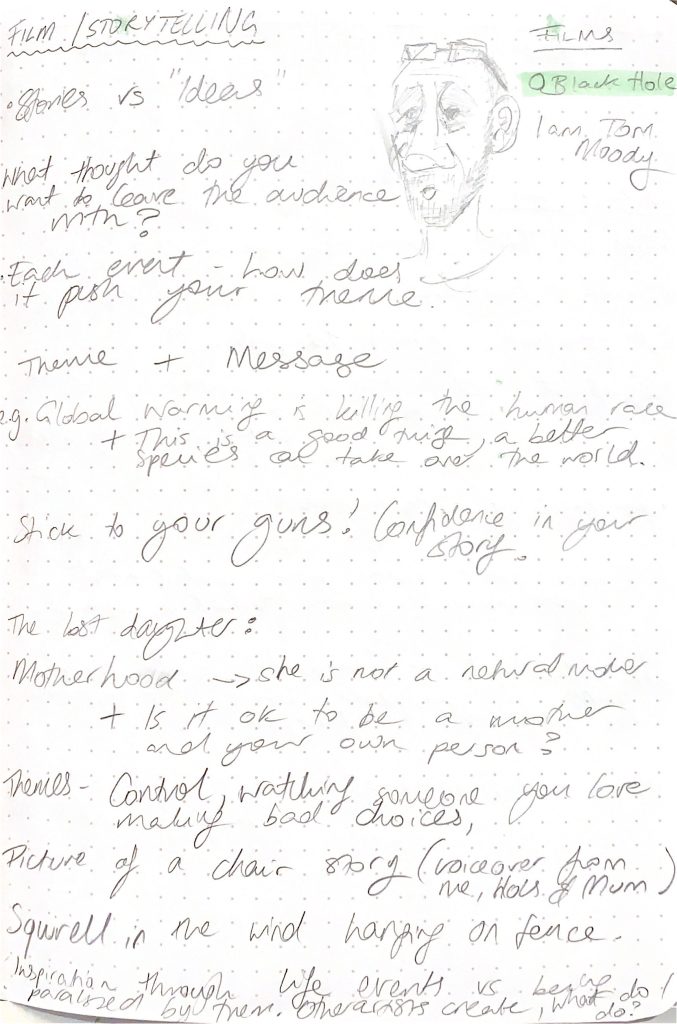 FILM / STORYTELLING
FILMS
Black Hole
I am Tom
Moody
• Stories vs "Ideas"
What thought do you
want to leave the audience
with?
• Each event - how does
it push your theme.
Theme + Message
e.g. Global warming is killing the human race
+ This is a good thing, a better
species can take over the world.
Stick to your guns! Confidence in your
story.
The lost daughter:
Motherhood → she is not a natural mother
+ Is it ok to be a mother
and your own person?
Themes - Control, watching someone you love
making bad choices,
Picture of a chair story (voiceover from
me, & Mum)
Squirell in the wind hanging on fence.
Inspiration through life events vs being
paralised by them. Other artists create, what do I
do?